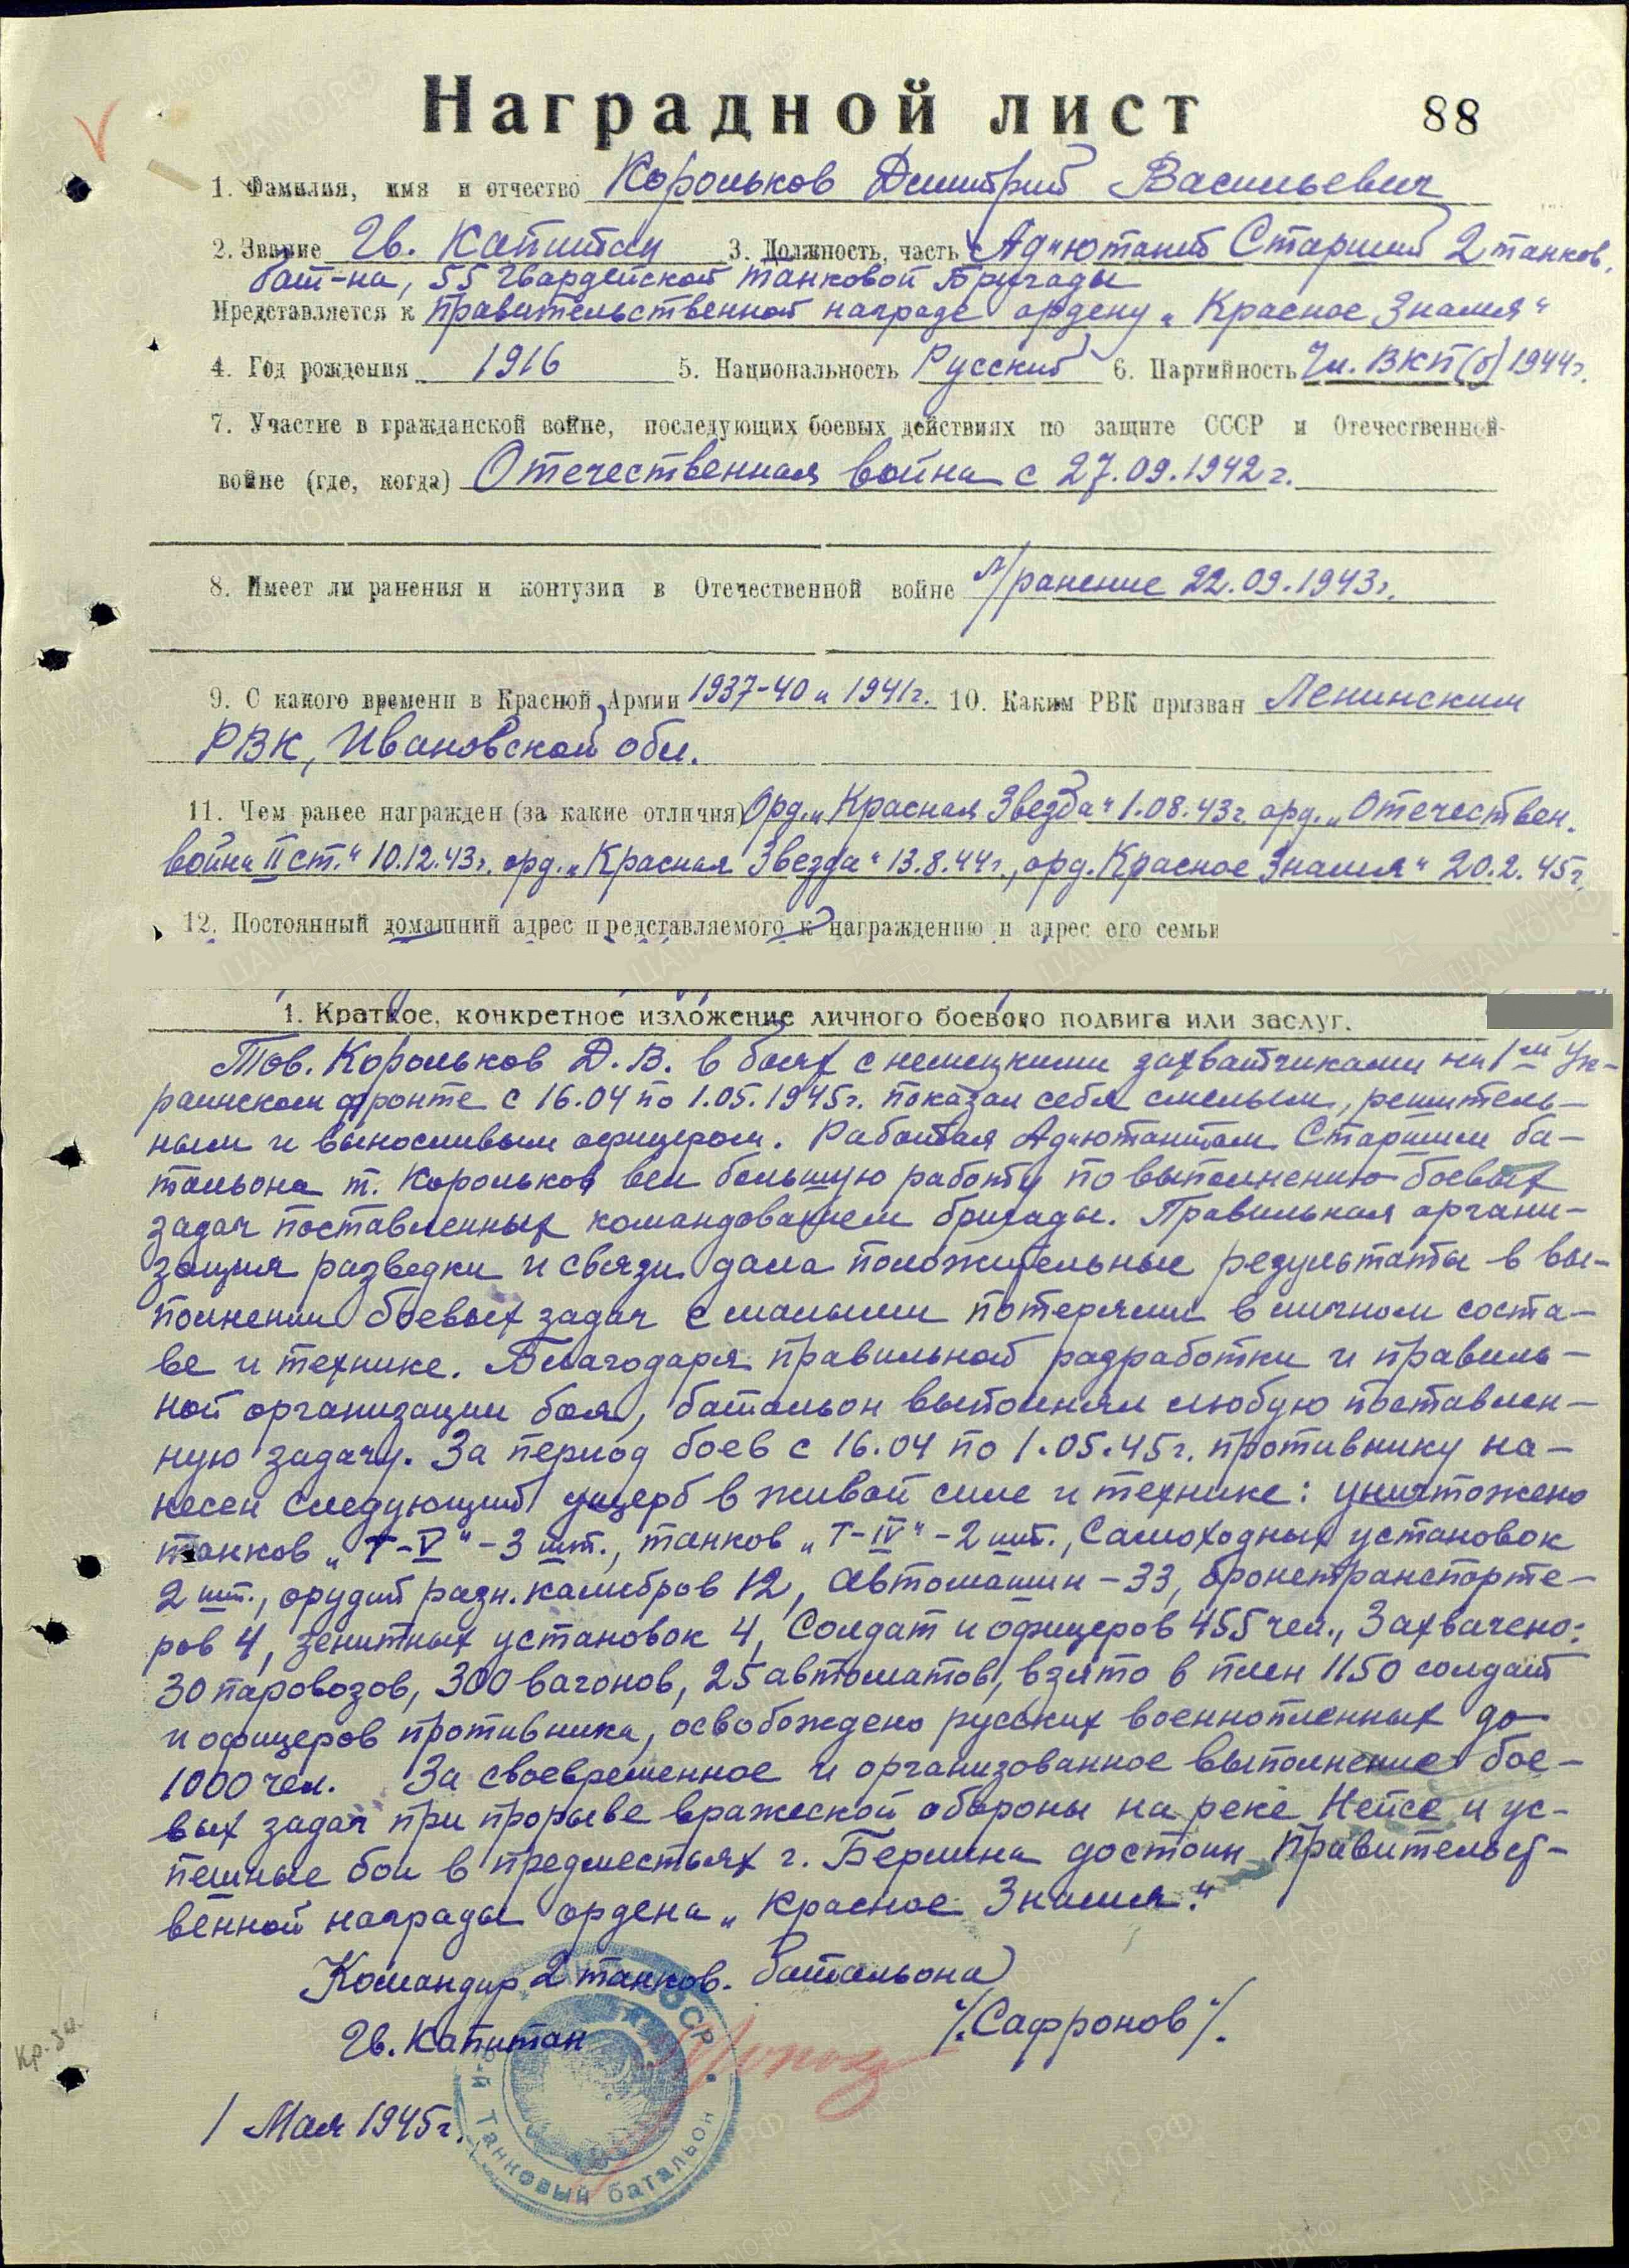 Наградной лист
88
1. Фамилия, имя и отчество Корольков Дмитрий Васильевич
2. Звание Гв. Капитан 3. Должность, часть Адъютант Старший 2 танков.
бат-на, 55 Гвардейской танковой Бригады
Представляется к правительственной награде ордену „Красное Знамя“
4. Год рождения 1916 5. Национальность Русский 6. Партийность Чл. ВКП(б) 1944г.
7. Участие в гражданской войне, последующих боевых действиях по защите СССР и Отечественной
войне (где, когда) Отечественная война с 27.09.1942г.
8. Имеет ли ранения и контузии в Отечественной войне л/ранение 22.09.1943г.
9. С какого времени в Красной Армии 1937-40 и 1941г. 10. Каким РВК призван Ленинским
РВК, Ивановской обл.
11. Чем ранее награжден (за какие отличия) Орд. „Красная Звезда“ 1.08.43г. орд. „Отечествен.
война II ст.“ 10.12.43г. орд. „Красная Звезда“ 13.8.44г., орд. Красное Знамя“ 20.2.45г.
12. Постоянный домашний адрес представляемого к награждению и адрес его семьи
1. Краткое, конкретное изложение личного боевого подвига или заслуг.
Тов. Корольков Д. В. в боях с немецкими захватчиками на 1м Ук-
раинском фронте с 16.04 по 1.05.1945г. показал себя смелым, решитель-
ным и выносливым офицером. Работая Адъютантом Старшим ба-
тальона т. Корольков вел большую работу по выполнению боевых
задач поставленных командованием бригады. Правильная органи-
зация разведки и связи дала положительные результаты в вы-
полнении боевых задач с малыми потерями в личном соста-
ве и технике. Благодаря правильной разработки и правиль-
ной организации боя, батальон выполнял любую поставлен-
ную задачу. За период боев с 16.04 по 1.05.45г. противнику на-
несен следующий ущерб в живой силе и технике: уничтожено
танков „Т-V“ -3 шт., танков „Т-IV“ -2 шт., Самоходных установок
2 шт., орудий разн. калибров 12, Автомашин -33, бронетранспорте-
ров 4, зенитных установок 4, Солдат и офицеров 455 чел., Захвачено:
30 паровозов, 300 вагонов, 25 автоматов, взято в плен 1150 солдат
и офицеров противника, освобождено русских военнопленных до
1000 чел. За своевременное и организованное выполнение бое-
вых задач при прорыве вражеской обороны на реке Нейсе и ус-
пешные бои в предместьях г. Берлина достоин Правительст-
венной награды ордена „Красное Знамя“.
Командир 2 танков. батальона
Гв. Капитан /Сафронов/.
1 Мая 1945г.
Кр. Зн.
Танковый батальон